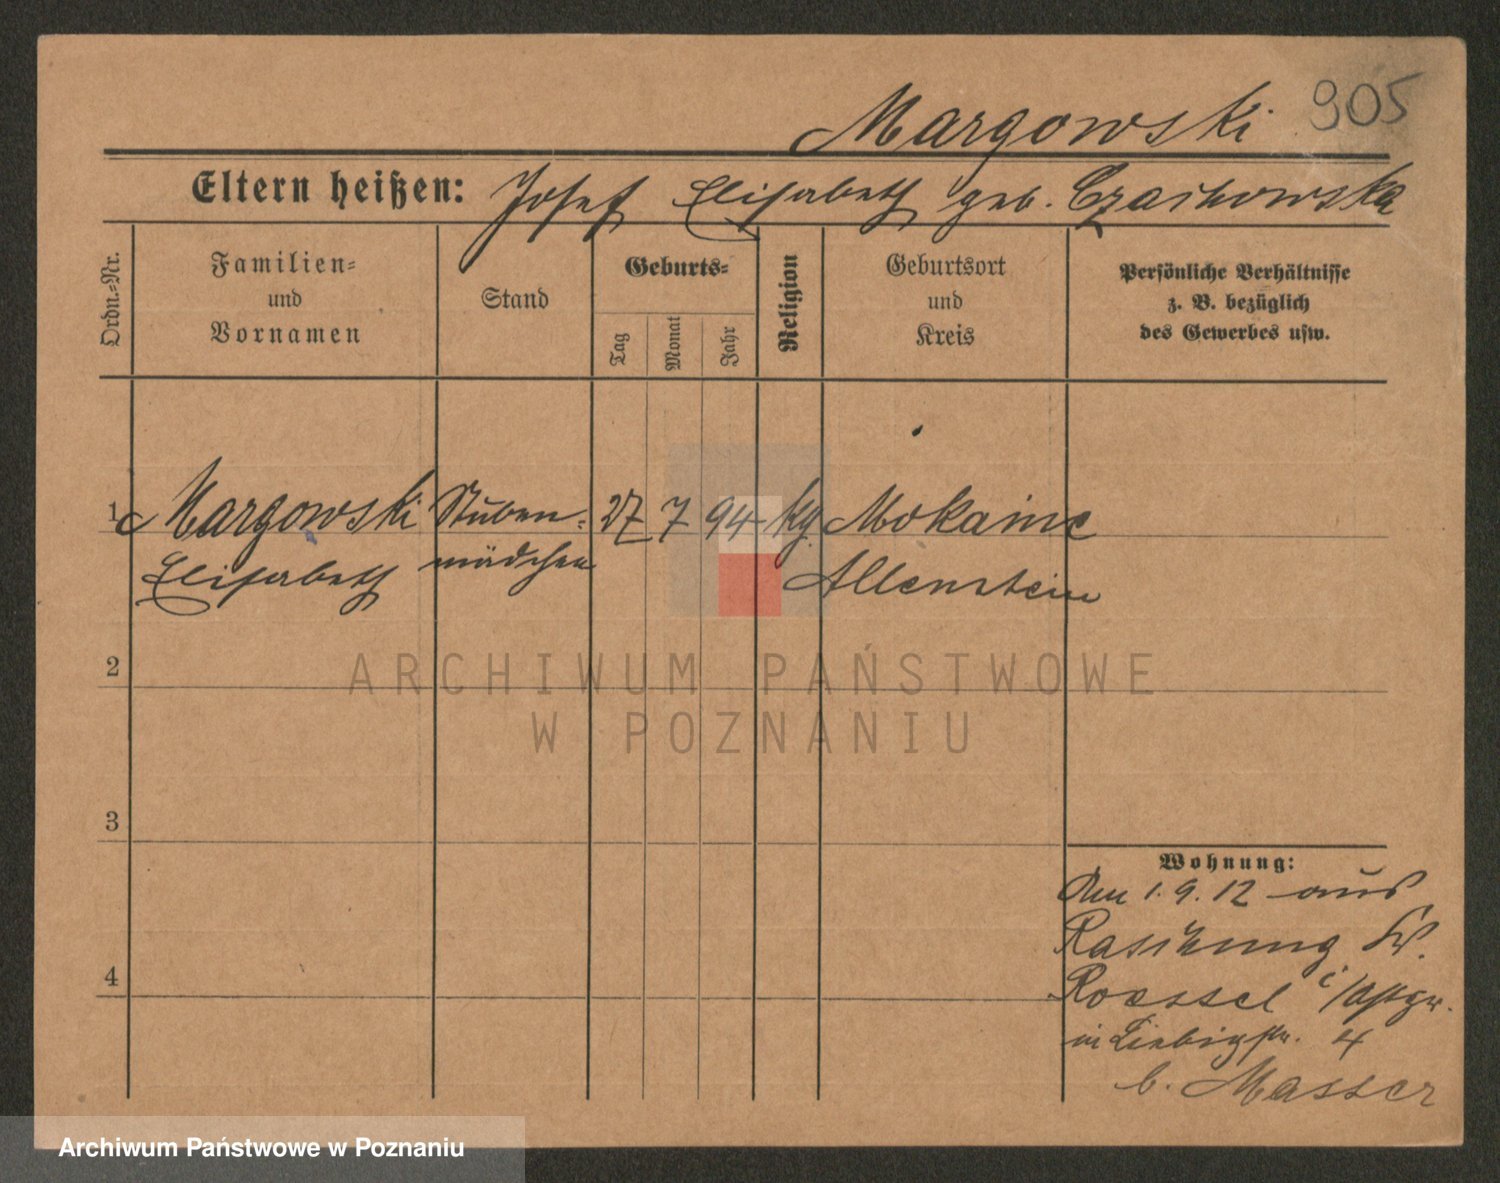 Margowski 905
Eltern heißen: Josef Elisabeth geb.
Ordn.=Nr.
Familien=
und
Vornamen
Stand
Geburts=
Tag
Monat
Jahr
Religion
Geburtsort
und
Kreis
Persönliche Verhältnisse
z. B. bezüglich
des Gewerbes usw.
1 Margowski Stuben= 27 7 94 kg. Mokaine
Elisabeth mädchen Allenstein
2
3
4
Wohnung:
Am 1.9.12 aus
Raschung Kr.
Roessel i/Ostpr.
in Liebigstr. 4
b. Masser
ARCHIWUM PAŃSTWOWE
W POZNANIU
Archiwum Państwowe w Poznaniu